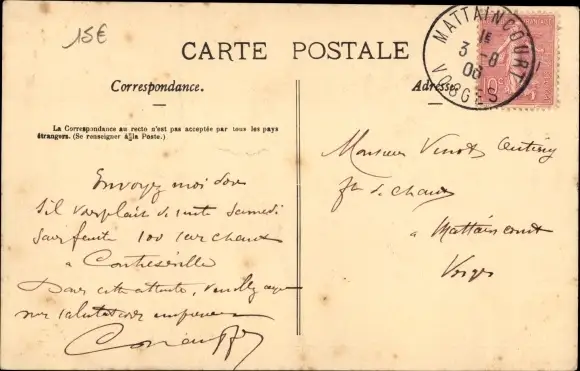 15€
CARTE POSTALE
MATTAINCOURT
VOSGES
3 -8
06
10c
Correspondance.
Adresse.
La Correspondance au recto n'est pas acceptée par tous les pays
étrangers. (Se renseigner à la Poste.)
Envoyez moi donc
s'il vous plait de suite Samedi
sans faute 100 chaux
à Contrexéville
Dans cette attente, veuillez agréer
mes salutations
Monsieur Vinot
ft de chaux
à Mattaincourt
Vosges